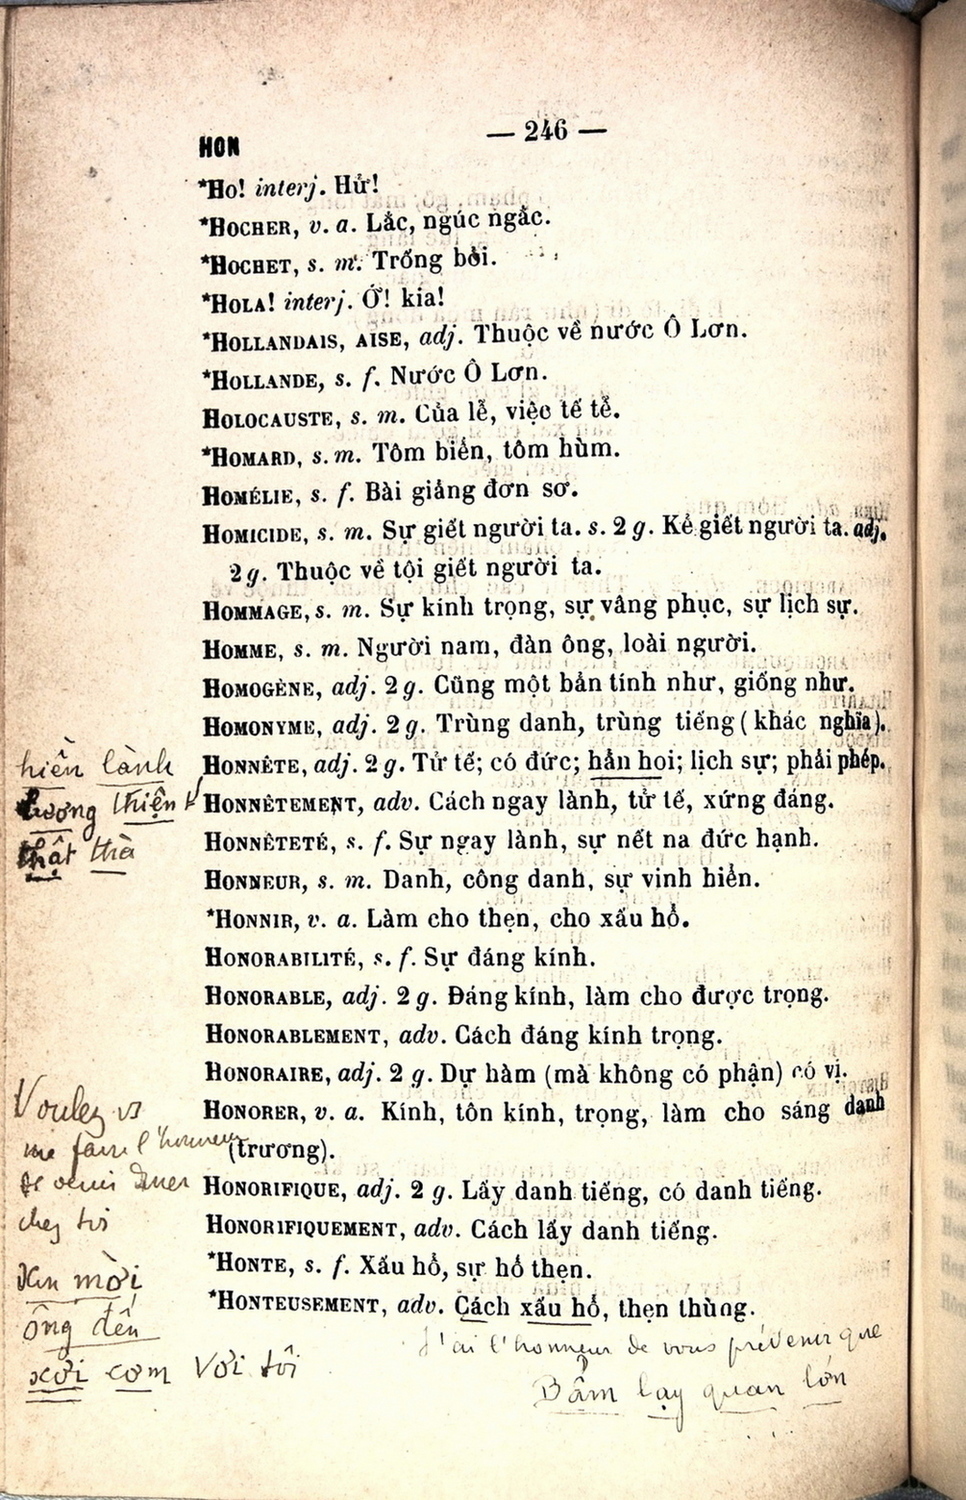 HON
— 246 —
*Ho! interj. Hử!
*Hocher, v. a. Lắc, ngúc ngắc.
*Hochet, s. m. Trổng bỏi.
*Hola! interj. Ớ! kia!
*Hollandais, aise, adj. Thuộc về nước Ô Lơn.
*Hollande, s. f. Nước Ô Lơn.
Holocauste, s. m. Của lễ, việc tế tễ.
*Homard, s. m. Tôm biển, tôm hùm.
Homélie, s. f. Bài giảng đơn sơ.
Homicide, s. m. Sự giết người ta. s. 2 g. Kẻ giết người ta. adj.
2 g. Thuộc về tội giết người ta.
Hommage, s. m. Sự kính trọng, sự vâng phục, sự lịch sự.
Homme, s. m. Người nam, đàn ông, loài người.
Homogène, adj. 2 g. Cũng một bản tính như, giống như.
Homonyme, adj. 2 g. Trùng danh, trùng tiếng (khác nghĩa).
Honnête, adj. 2 g. Tử tế; có đức; hẳn hoi; lịch sự; phải phép.
Honnêtement, adv. Cách ngay lành, tử tế, xứng đáng.
Honnêteté, s. f. Sự ngay lành, sự nết na đức hạnh.
Honneur, s. m. Danh, công danh, sự vinh hiển.
*Honnir, v. a. Làm cho thẹn, cho xấu hổ.
Honorabilité, s. f. Sự đáng kính.
Honorable, adj. 2 g. Đáng kính, làm cho được trọng.
Honorablement, adv. Cách đáng kính trọng.
Honoraire, adj. 2 g. Dự hàm (mà không có phận) có vị.
Honorer, v. a. Kính, tôn kính, trọng, làm cho sáng danh
(trương).
Honorifique, adj. 2 g. Lấy danh tiếng, có danh tiếng.
Honorifiquement, adv. Cách lấy danh tiếng.
*Honte, s. f. Xấu hổ, sự hổ thẹn.
*Honteusement, adv. Cách xấu hổ, thẹn thùng.
hiền lành
lương thiện
thật thà
Voulez vs
me faire l'honneur
de venir diner
chez toi
Xin mời
ông đến
xơi cơm với tôi
J'ai l'honneur de vous prévenir que
Bẩm lạy quan lớn